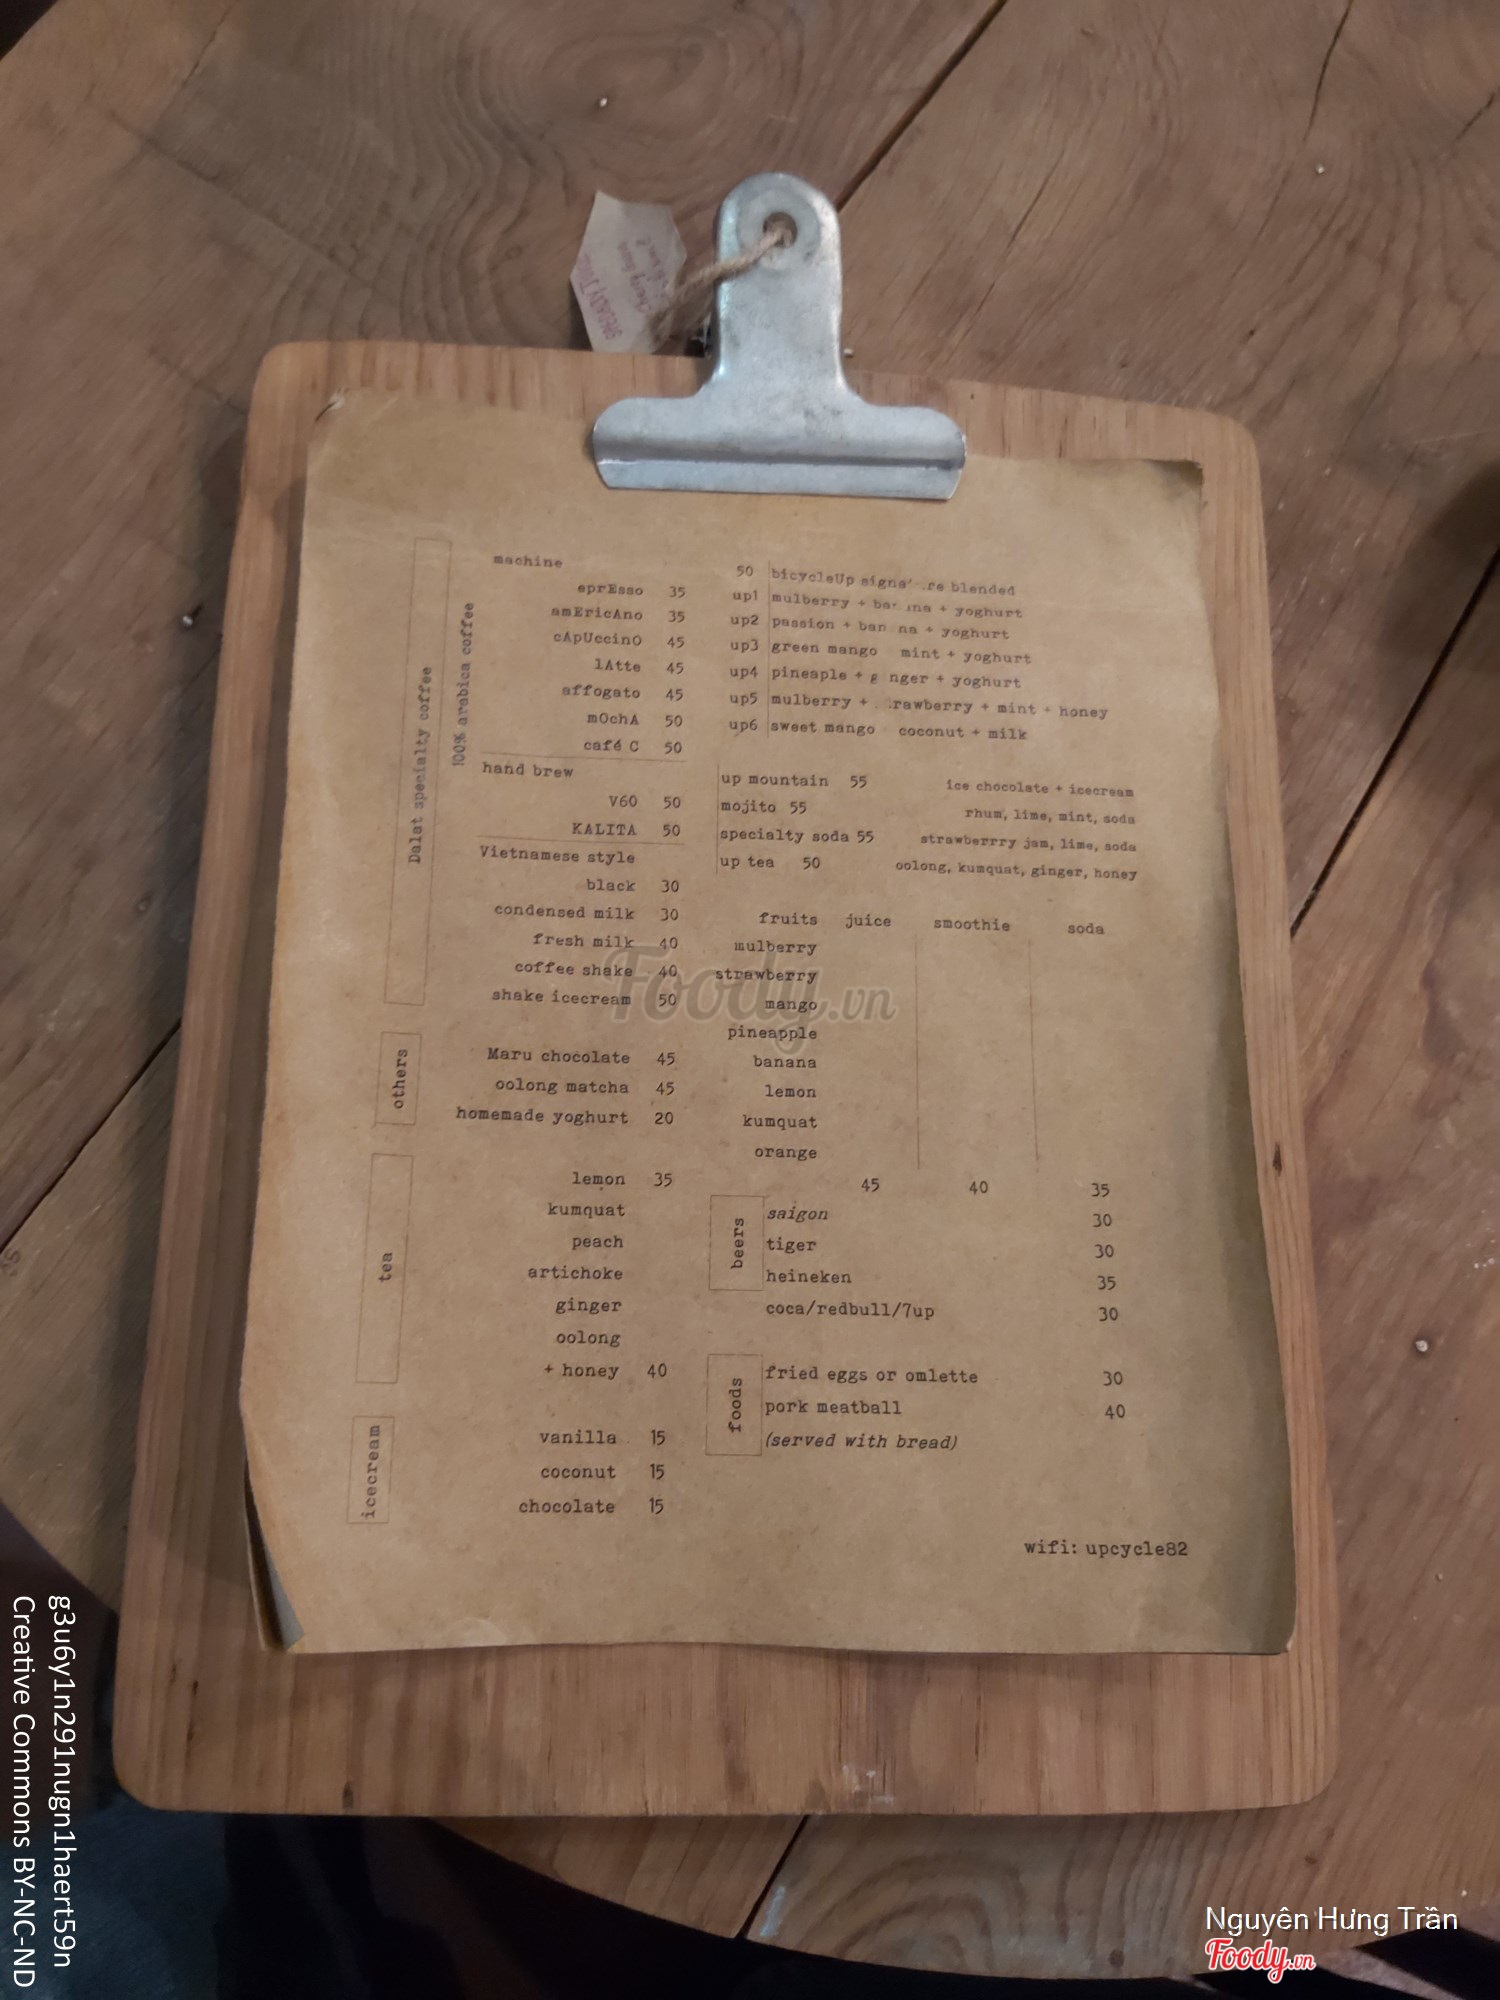 machine
eprEsso 35
amEricAno 35
cApUccinO 45
lAtte 45
affogato 45
mOchA 50
café C 50
hand brew
V60 50
KALITA 50
Vietnamese style
black 30
condensed milk 30
fresh milk 40
coffee shake 40
shake icecream 50
Dalat specialty coffee
100% arabica coffee
others
Maru chocolate 45
oolong matcha 45
homemade yoghurt 20
tea
lemon 35
kumquat
peach
artichoke
ginger
oolong
+ honey 40
icecream
vanilla 15
coconut 15
chocolate 15
50 bicycleUp blended
up1 mulberry + + yoghurt
up2 passion + + yoghurt
up3 green mango mint + yoghurt
up4 pineaple + + yoghurt
up5 mulberry + + mint + honey
up6 sweet mango coconut + milk
up mountain 55 ice chocolate + icecream
mojito 55 rhum, lime, mint, soda
specialty soda 55 strawberrry jam, lime, soda
up tea 50 oolong, kumquat, ginger, honey
fruits juice smoothie soda
mulberry
strawberry
mango
pineapple
banana
lemon
kumquat
orange
45 40 35
beers
saigon 30
tiger 30
heineken 35
coca/redbull/7up 30
foods
fried eggs or omlette 30
pork meatball 40
(served with bread)
wifi: upcycle82
Foody.vn
g3u6y1n291nugn1haert59n
Creative Commons BY-NC-ND
Nguyên Hưng Trần
Foody.vn